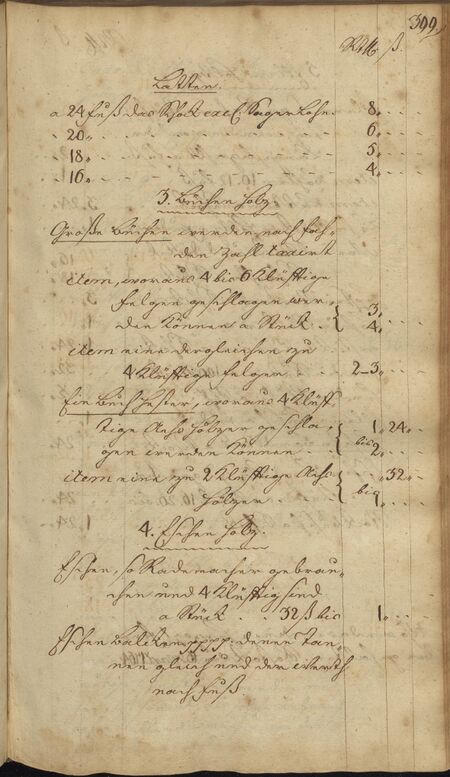 399.
Rthlr ß.
Latten.
a 24 fuß das Schock excl. Sagerlohn. 8,
" 20" 6,
18, 5,
16, 4,
3. Büchen Holtz
Große Büchen werden nach Fäh-
den Zahl taxirt
item, woraus 4 bis 6 Klüfftige
Felgen geschlagen wer-
den können a Stück 3, 4,
item eine dergleichen zu
4 Klüfftige Felgen 2-3,
Ein Buch Heister, woraus 4 Klüff
tige Achs Höltzer geschla- 1, 24"
gen werden können bis 2,
item eine zu 2 Klüfftige Achs " 32"
Höltzer bis 1,
4. Eschen Holtz.
Eschen, so Rademacher gebrau-
chen und 4 Klüfftig sind
a Stück 32 ß bis 1,
Eschen Balcken pppp. denen Tan-
nen gleich und der Werth
nach Fuß.